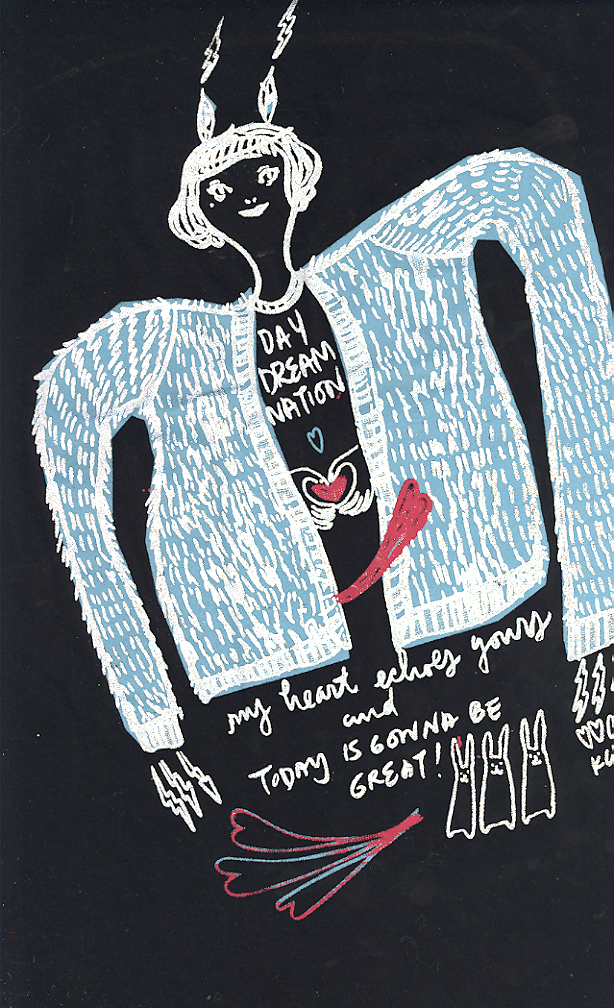 DAY
DREAM
NATION
my heart echoes yours
and
TODAY IS GONNA BE
GREAT!